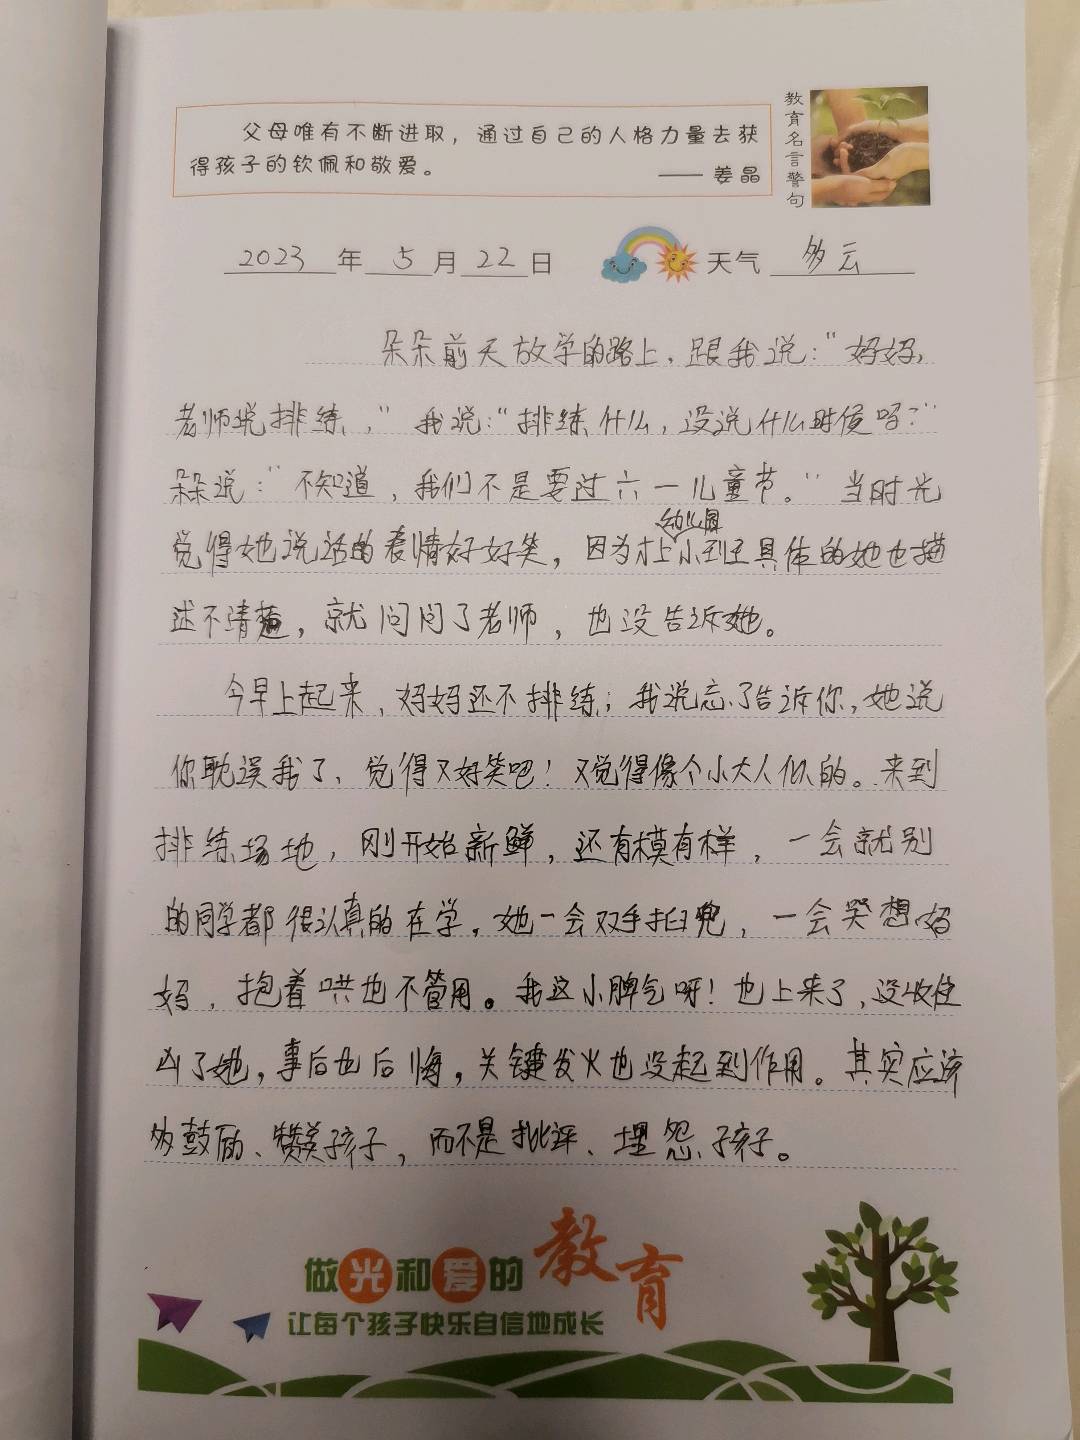 父母唯有不断进取，通过自己的人格力量去获
得孩子的钦佩和敬爱。
—— 姜晶
教育名言警句
2023年5月22日 天气 多云
朵朵前天放学的路上，跟我说：“妈妈，
老师说排练，”我说：“排练什么，没说什么时候吗？”
朵朵说：“不知道，我们不是要过六一儿童节。”当时光
觉得她说话的表情好好笑，因为才上小
幼儿园
具体的她也描
述不清楚，就问问了老师，也没告诉她。
今早上起来，妈妈还不排练；我说忘了告诉你，她说
你耽误我了、觉得又好笑吧！又觉得像个小大人似的。来到
排练场地，刚开始新鲜，还有模有样，一会就别
的同学都很认真的在学，她一会双手抱兜，一会哭想妈
妈，抱着哄也不管用。我这小脾气呀！也上来了，没收住
凶了她，事后也后悔，关键发火也没起到作用。其实应该
多鼓励、赞美孩子，而不是批评、埋怨孩子。
做光和爱的教育
让每个孩子快乐自信地成长